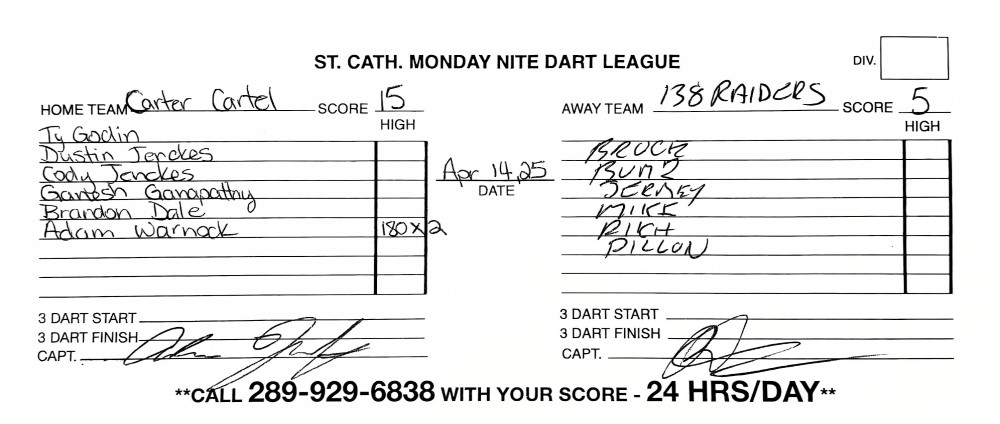 ST. CATH. MONDAY NITE DART LEAGUE
DIV.
HOME TEAM Carter Cartel SCORE 15
HIGH
Ty Godin
Dustin Jenckes
Cody Jenckes
Ganesh Ganapathy
Brandon Dale
Adam Warnock 180x2
3 DART START
3 DART FINISH
CAPT.
Apr 14, 25
DATE
AWAY TEAM 138 RAIDERS SCORE 5
HIGH
BROCK
JERMEY
MIKE
RICH
DILLON
3 DART START
3 DART FINISH
CAPT.
**CALL 289-929-6838 WITH YOUR SCORE - 24 HRS/DAY**